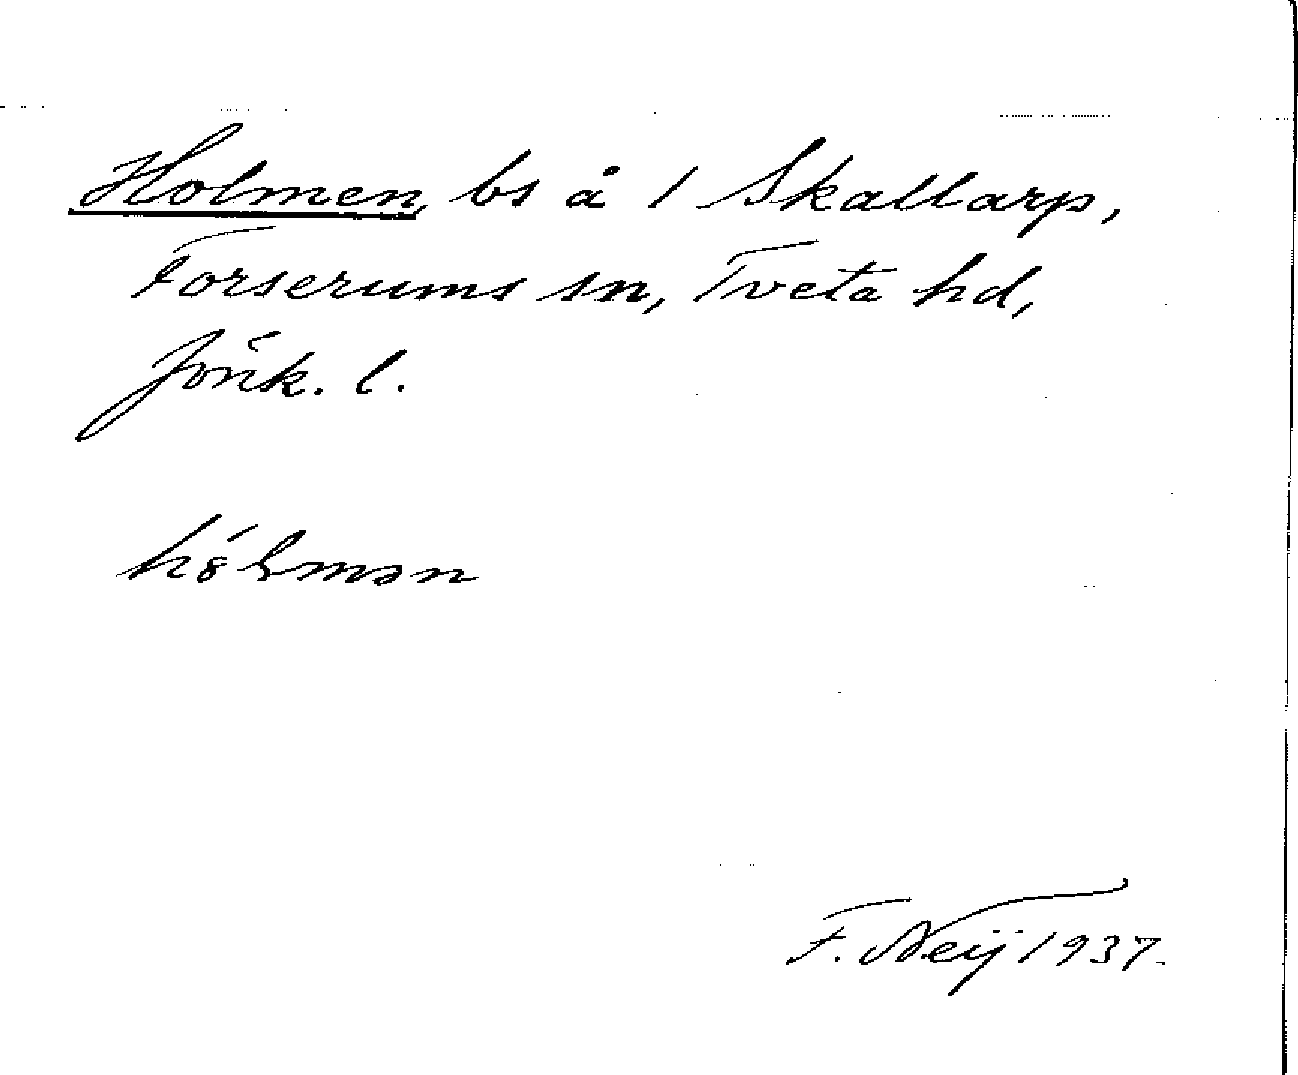 Holmen, bs å 1 Skallarp,
Forserums sn, Tveta hd,
Jönk. l.
F. Neij 1937.